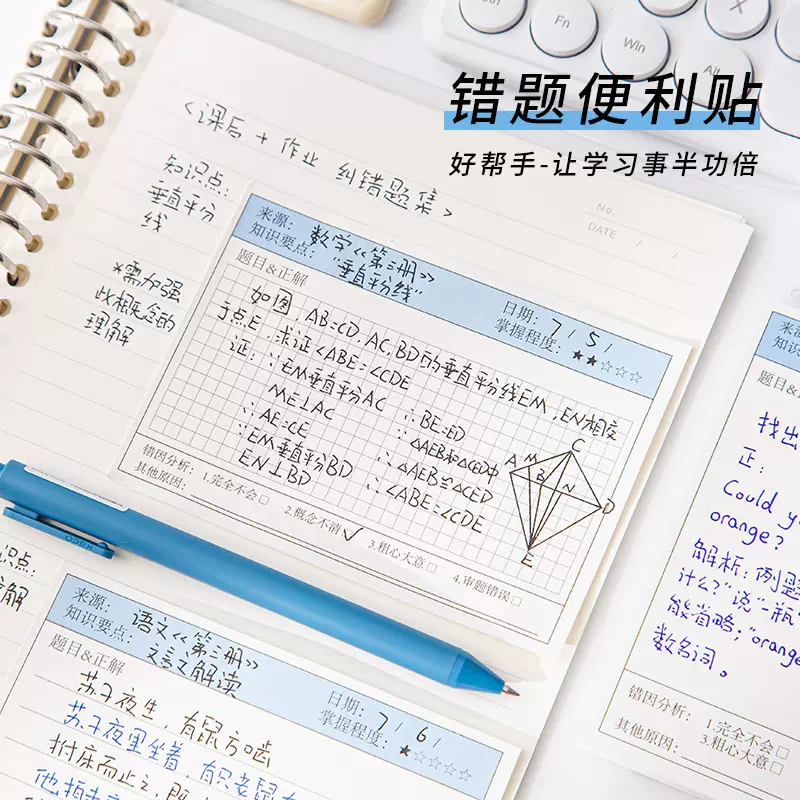 Fn
Win
Alt
X
错题便利贴
好帮手-让学习事半功倍
No.
DATE / /
<课后+作业 纠错题集>
知识点:
垂直平分
线
*需加强
此概念的
理解
来源: 数学《第三册》
知识要点: "垂直平分线"
日期: 7/5/
掌握程度: ★★☆☆☆
题目&正解
如图,AB=CD,AC,BD的垂直平分线EM,EN相交
于点E,求证<ABE=∠CDE
证: ∵EM垂直平分AC
ME⊥AC
∴AE=CE
∵EM垂直平分BD
EN⊥BD
∴BE=ED
∵△AEB和△CED中
∴△AEB≌△CED
∴∠ABE=∠CDE
A
M
B
C
N
D
E
错因分析: 1.完全不会□ 2.概念不清✓ 3.粗心大意□ 4.审题错误□
其他原因:
识点:
解
来源: 语文《第三册》
知识要点: 文言文解读
日期: 7/6/
掌握程度: ★☆☆☆☆
题目&正解
苏子夜坐,有鼠方啮
苏子夜里坐着,有只老鼠在
拊床而止之,既
他拍
来源
知识
题目&
找出
正:
Could y
orange?
解析:例题
什么?"说"一瓶
能省略;"orang
数名词。
错因分析: 1.完全不会□
其他原因: 3.粗心大意□